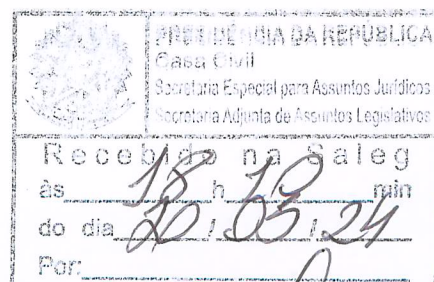 PRESIDÊNCIA DA REPÚBLICA
Casa Civil
Secretaria Especial para Assuntos Jurídicos
Secretaria Adjunta de Assuntos Legislativos
Recebido na Saleg
às 18 h 10 min
do dia 20 / 03 / 24
Por: